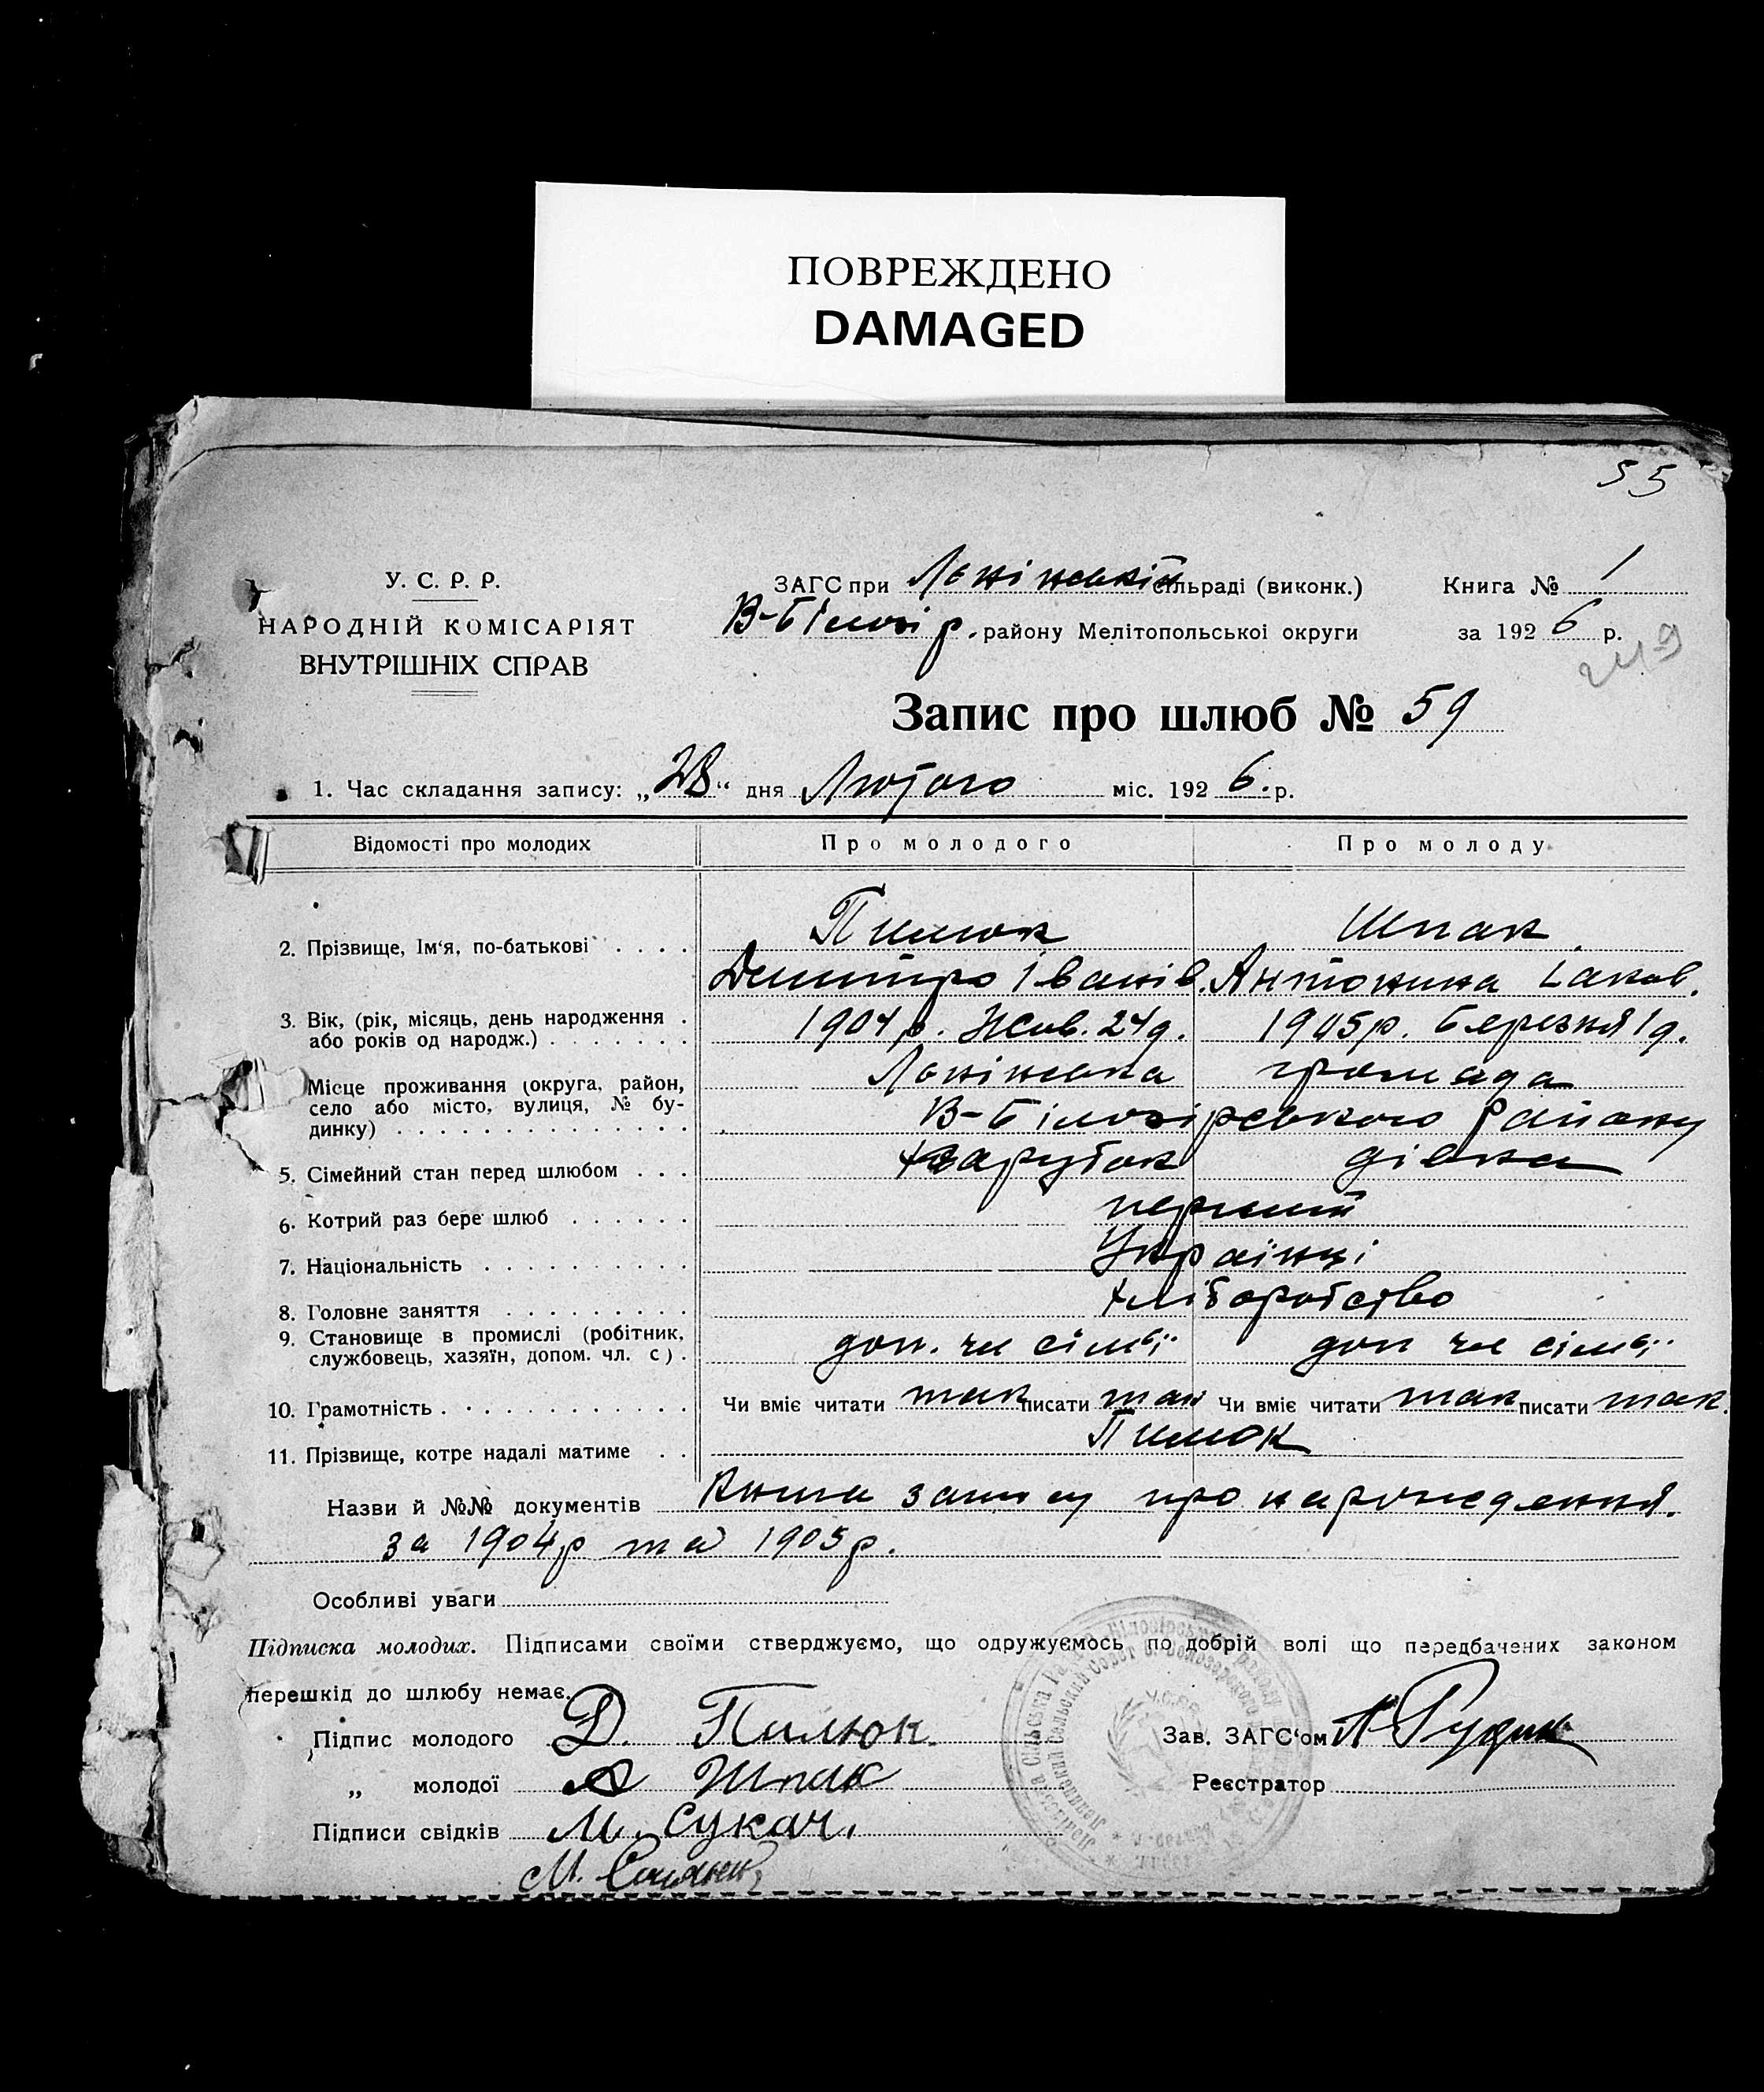 ПОВРЕЖДЕНО
DAMAGED
55
У. С. Р. Р.
НАРОДНІЙ КОМІСАРІЯТ
ВНУТРІШНІХ СПРАВ
ЗАГС при Лєнінській сільраді (виконк.) Книга № 1
В-Білозір. району Мелітопольської округи за 1926 р.
249
Запис про шлюб № 59
1. Час складання запису: „28“ дня Лютого міс. 1926. р.
Відомості про молодих Про молодого Про молоду
2. Прізвище, Ім'я, по-батькові . . . . Пилюк Шпак
Дмитро Іванів. Антонина Іаков.
3. Вік, (рік, місяць, день народження . 1904 р. Жов. 24 д. 1905 р. Березня 1 д.
або років од народж.) . . . . . . .
Місце проживання (округа, район, Лєнінська громада
село або місто, вулиця, № бу-
динку) . . . . . . . . . . . . . . В-Білозірського Району
5. Сімейний стан перед шлюбом . . . парубок дівка
6. Котрий раз бере шлюб . . . . . . перший
7. Національність . . . . . . . . . . Українці
8. Головне заняття . . . . . . . . . хліборобство
9. Становище в промислі (робітник,
службовець, хазяїн, допом. чл. с) . доп. чл сімьї доп чл сімьї
10. Грамотність . . . . . . . . . . . . Чи вміє читати так писати так Чи вміє читати так писати так.
11. Прізвище, котре надалі матиме . . Пилюк
Назви й №№ документів Книга запису про народження.
за 1904р та 1905р.
Особливі уваги
Підписка молодих. Підписами своїми стверджуємо, що одружуємось по добрій волі що передбачених законом
перешкід до шлюбу немає.
Підпис молодого Д. Пилюк. Зав. ЗАГС'ом Рудик
„ молодої А Шпак Реєстратор
Підписи свідків М. Сукач.
М.